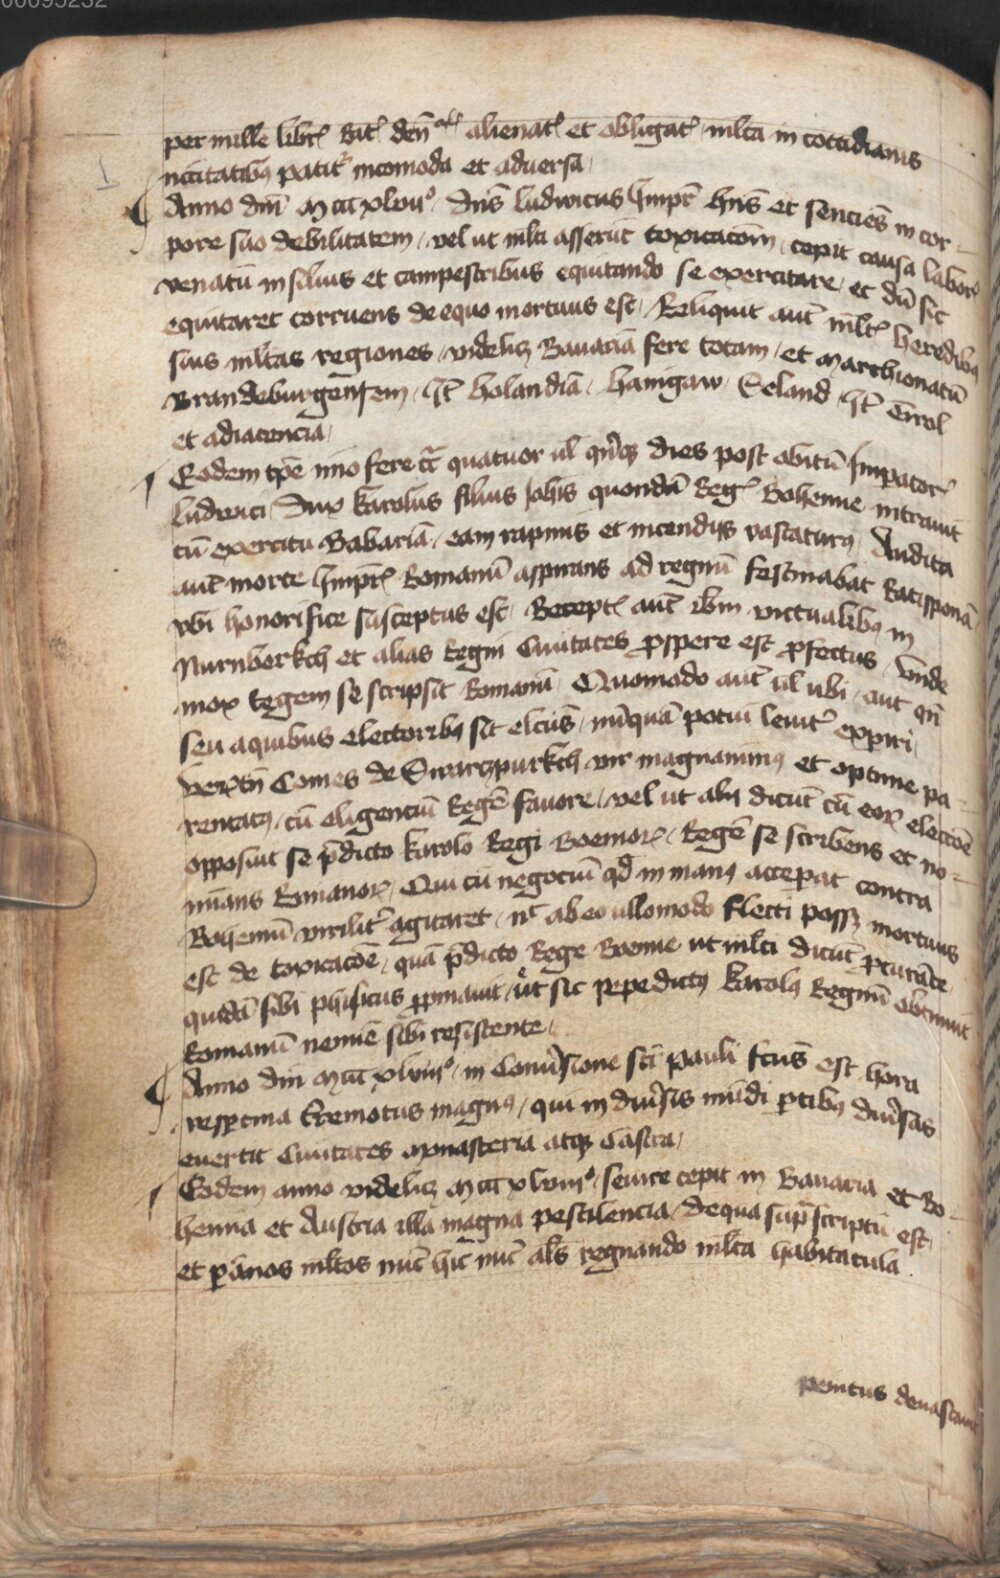 00095232
per mille libr̄ Rat̄ den̄ alienat̄ et obligat̄ ml̄ta in cottidianis
nititatibꝫ patit᷑ incomoda et aduersa
Anno dn̄i Mccc xlvii° Dn̄s ludwicus Imp̄r hn̄s et senciēs in cor-
pore suo debilitatem / vel ut ml̄ti asserūt toxicacōm cepit causa labor̄
venatū in siluis et campestribus equitando se exercitare et dū sic
equitaret corruens de equo mortuus est / Reliquit aut̄ ml̄t̄ heredibꝫ
suis ml̄tas regiones videlicꝫ Bauariā fere totam / et Marchionatū
Brandeburgēnsem / It̄ holandiā / hanigaw / Seland It̄ Tirol
et adiacencia /
Eodem tp̄e imo fere c̄ quatuor ul̄ qn̄qꝫ dies post obitū Impator̄
ludwici Dux karolus filius Joh̄is quondā Reḡ Bohemie intrauit
cū exercitu Babariā eam rapinis et incendijs vastaturꝰ Audita
aut̄ morte Imp̄r̄ Romanū aspirans ad regnū festinabat Ratisponā
vbi honorifice susceptus est Recept̄ aut̄ ibm̄ victualibꝫ in
Nurnberkch et alias Regni Ciuitates p̄spere est p̄fectus / Vnde
mox Regem se scripsit Romanū Quomodo aut̄ ul̄ ubi / aut qn̄
seu a quibus electoribꝫ sit elc̄us nūquā potui leuit᷑ expiri
Verꝫtn̄ Comes de Swarczpurkch vir magnanimꝰ et optime pa-
rentatꝰ cū eligenciū Regē fauore / vel ut alij dicūt cū eoꝝ eleccōe
opposuit se p̄dicto karolo Regi Boemoꝝ / Regē se scribens et no-
mīans Romanoꝝ / Qui cū negociū qd̄ in manꝰ accepat contra
Bohemū virilit᷑ agitaret nc̄ ab eo ullomodo flecti possꝫ mortuus
est de toxicacōe / quā p̄dicto Rege Boemie ut ml̄ti dicūt p̄curāte
quidā sibi phisicus p̄pinauit / ut sic sepedictꝰ karolꝰ Regnū obtinuit
Romanū nemīe sibi resistente /
Anno dn̄i Mccc xlviii° / in Conūsione sc̄i pauli fc̄us est hora
vesp̄tina t̄remotus magnꝰ / qui in diuersis mūdi ptibꝫ diuersas
euertit Ciuitates Monasteria atqꝫ Castra /
Eodem anno videlicꝫ Mccc xlviii° / seuire cepit in Bauaria et Bo-
hemia et Austria illa magna pestilencia / de qua sup̄ scriptū est
et p annos ml̄tos nūc hic nūc al̄s regnando ml̄ta habitacula
penitus deuastauit